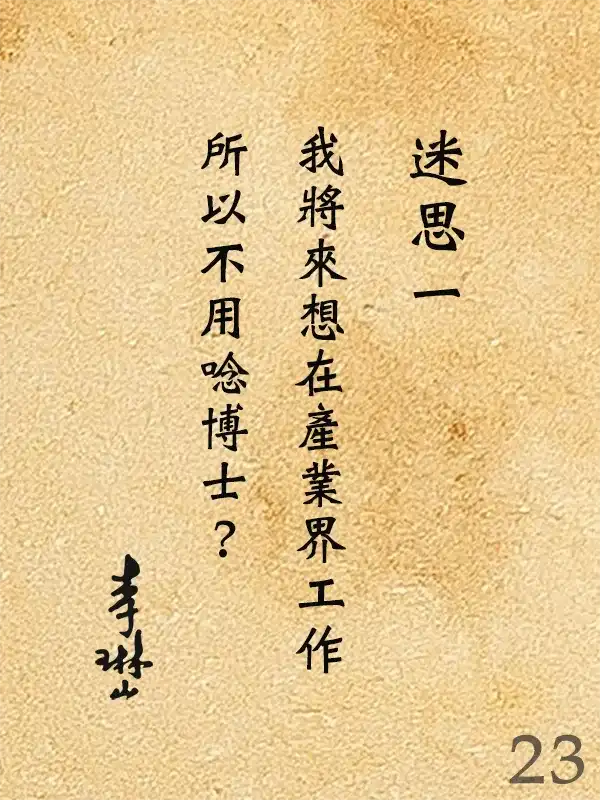 迷思一
我將來想在產業界工作
所以不用唸博士？
李琳山
23